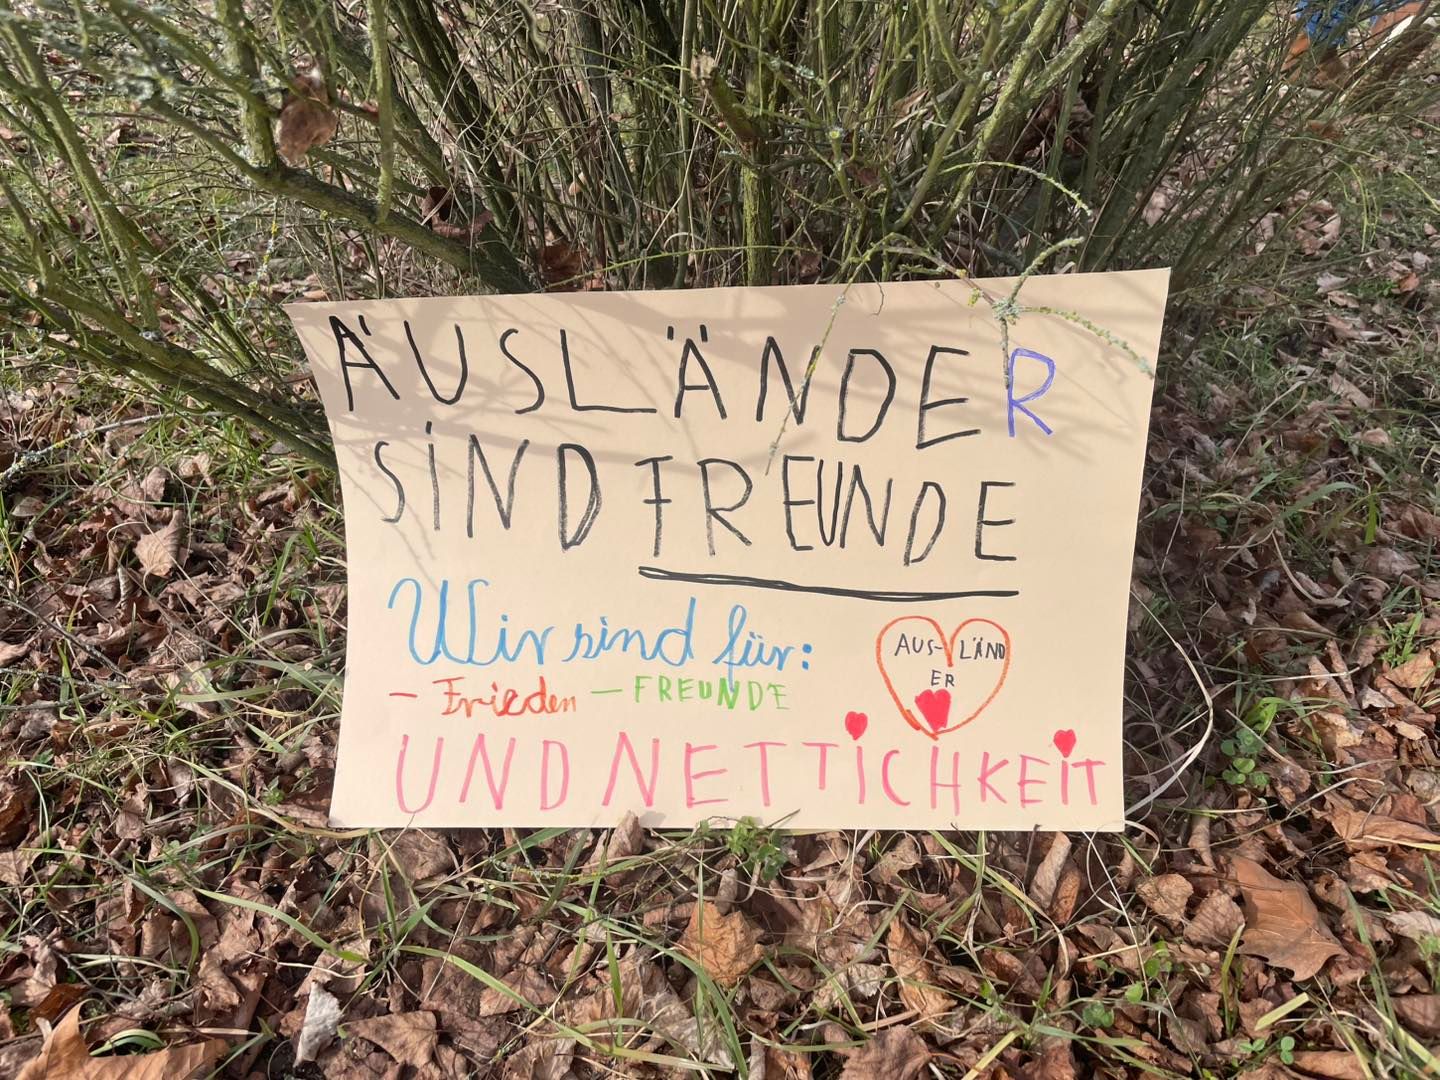 ÄUSLÄNDER
SIND FREUNDE
Wir sind für:
- Frieden - FREUNDE
AUS- LÄND
ER
UND NETTICHKEIT